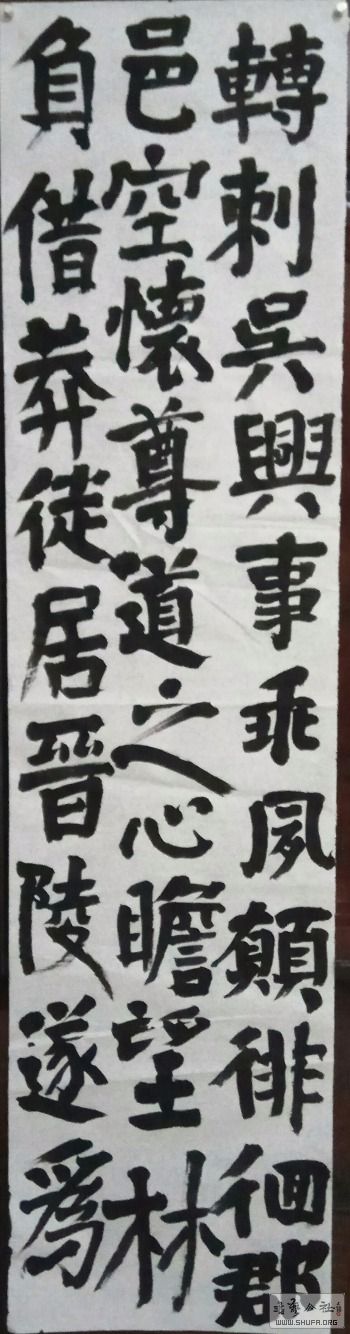 轉刺吳興事乖夙願徘徊郡
邑空懷尊道之心瞻望林
負借莽徙居晉陵遂爲
WWW.SHUFA.ORG